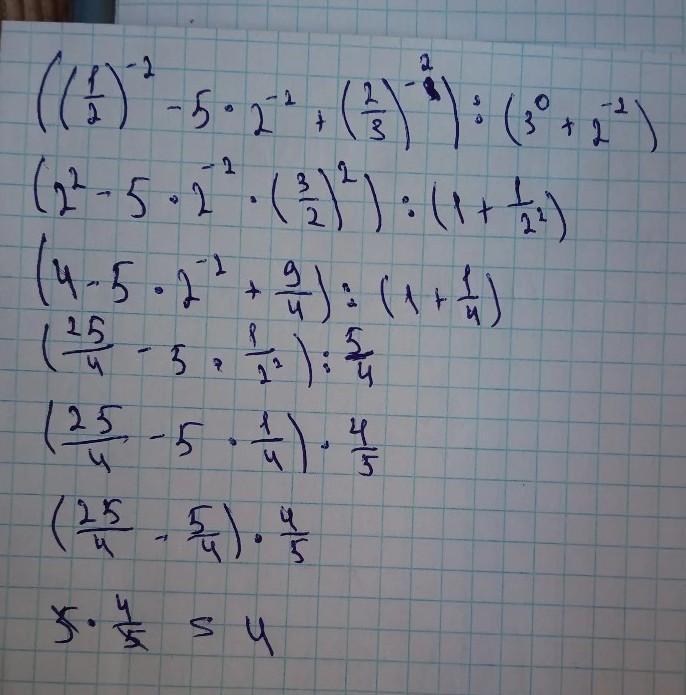 ((1/2)^-2 - 5 · 2^-2 + (2/3)^-2) : (3^0 + 2^-2)
(2^2 - 5 · 2^-2 · (3/2)^2) : (1 + 1/2^2)
(4 - 5 · 2^-2 + 9/4) : (1 + 1/4)
(25/4 - 5 · 1/2^2) : 5/4
(25/4 - 5 · 1/4) · 4/5
(25/4 - 5/4) · 4/5
5 · 4/5 = 4